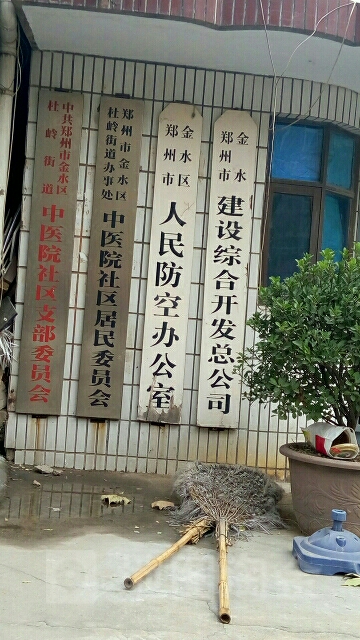 中共郑州市金水区
杜岭街道
中医院社区支部委员会
郑州市金水区
杜岭街道办事处
中医院社区居民委员会
郑州市
金水区
人民防空办公室
郑州市
金水
建设综合开发总公司